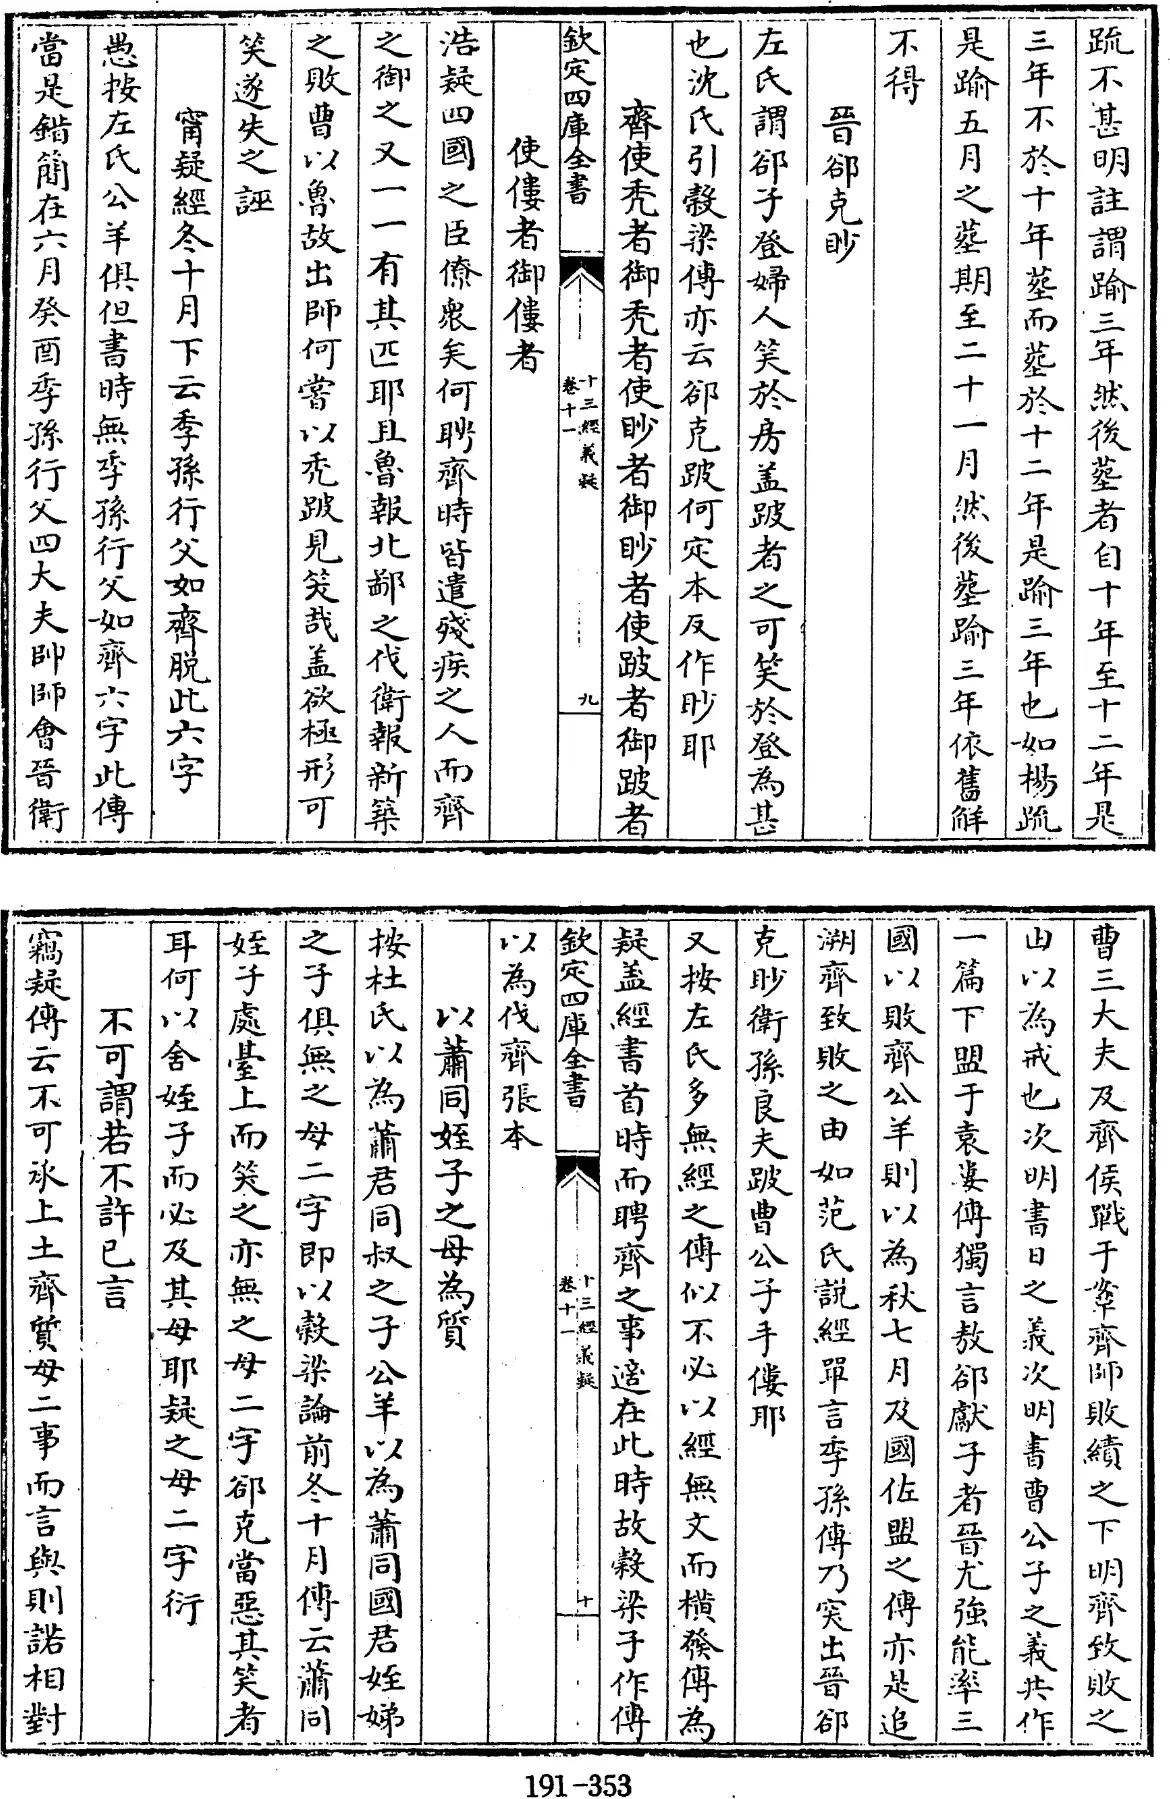 疏不甚明註謂踰三年然後塟者自十年至十二年是
三年不於十年塟而塟於十二年是踰三年也如楊疏
是踰五月之塟期至二十一月然後塟踰三年依舊解
不得
晉郤克眇
左氏謂郤子登婦人笑於房盖跛者之可笑於登為甚
也沈氏引糓梁傳亦云郤克跛何定本反作眇耶
齊使秃者御秃者使眇者御眇者使跛者御跛者
欽定四庫全書
十三經義疑
卷十一
九
使僂者御僂者
浩疑四國之臣僚衆矣何聘齊時皆遣殘疾之人而齊
之御之又一一有其匹耶且魯報北鄙之伐衛報新築
之敗曹以魯故出師何嘗以秃跛見笑哉盖欲極形可
笑遂失之誣
甯疑經冬十月下云季孫行父如齊脱此六字
愚按左氏公羊俱但書時無季孫行父如齊六字此傳
當是錯簡在六月癸酉季孫行父四大夫帥師會晉衛
曹三大夫及齊侯戰于鞌齊師敗績之下明齊致敗之
由以為戒也次明書日之義次明書曹公子之義共作
一篇下盟于袁婁傳獨言敖郤獻子者晉尤強能率三
國以敗齊公羊則以為秋七月及國佐盟之傳亦是追
溯齊致敗之由如范氏説經單言季孫傳乃突出晉郤
克眇衛孫良夫跛曹公子手僂耶
又按左氏多無經之傳似不必以經無文而横發傳為
疑盖經書首時而聘齊之事適在此時故糓梁子作傳
欽定四庫全書
十三經義疑
卷十一
十
以為伐齊張本
以蕭同姪子之母為質
按杜氏以為蕭君同叔之子公羊以為蕭同國君姪娣
之子俱無之母二字即以糓梁論前冬十月傳云蕭同
姪子處臺上而笑之亦無之母二字郤克當惡其笑者
耳何以舍姪子而必及其母耶疑之母二字衍
不可謂若不許已言
竊疑傳云不可承上土齊質母二事而言與則諾相對
191-353